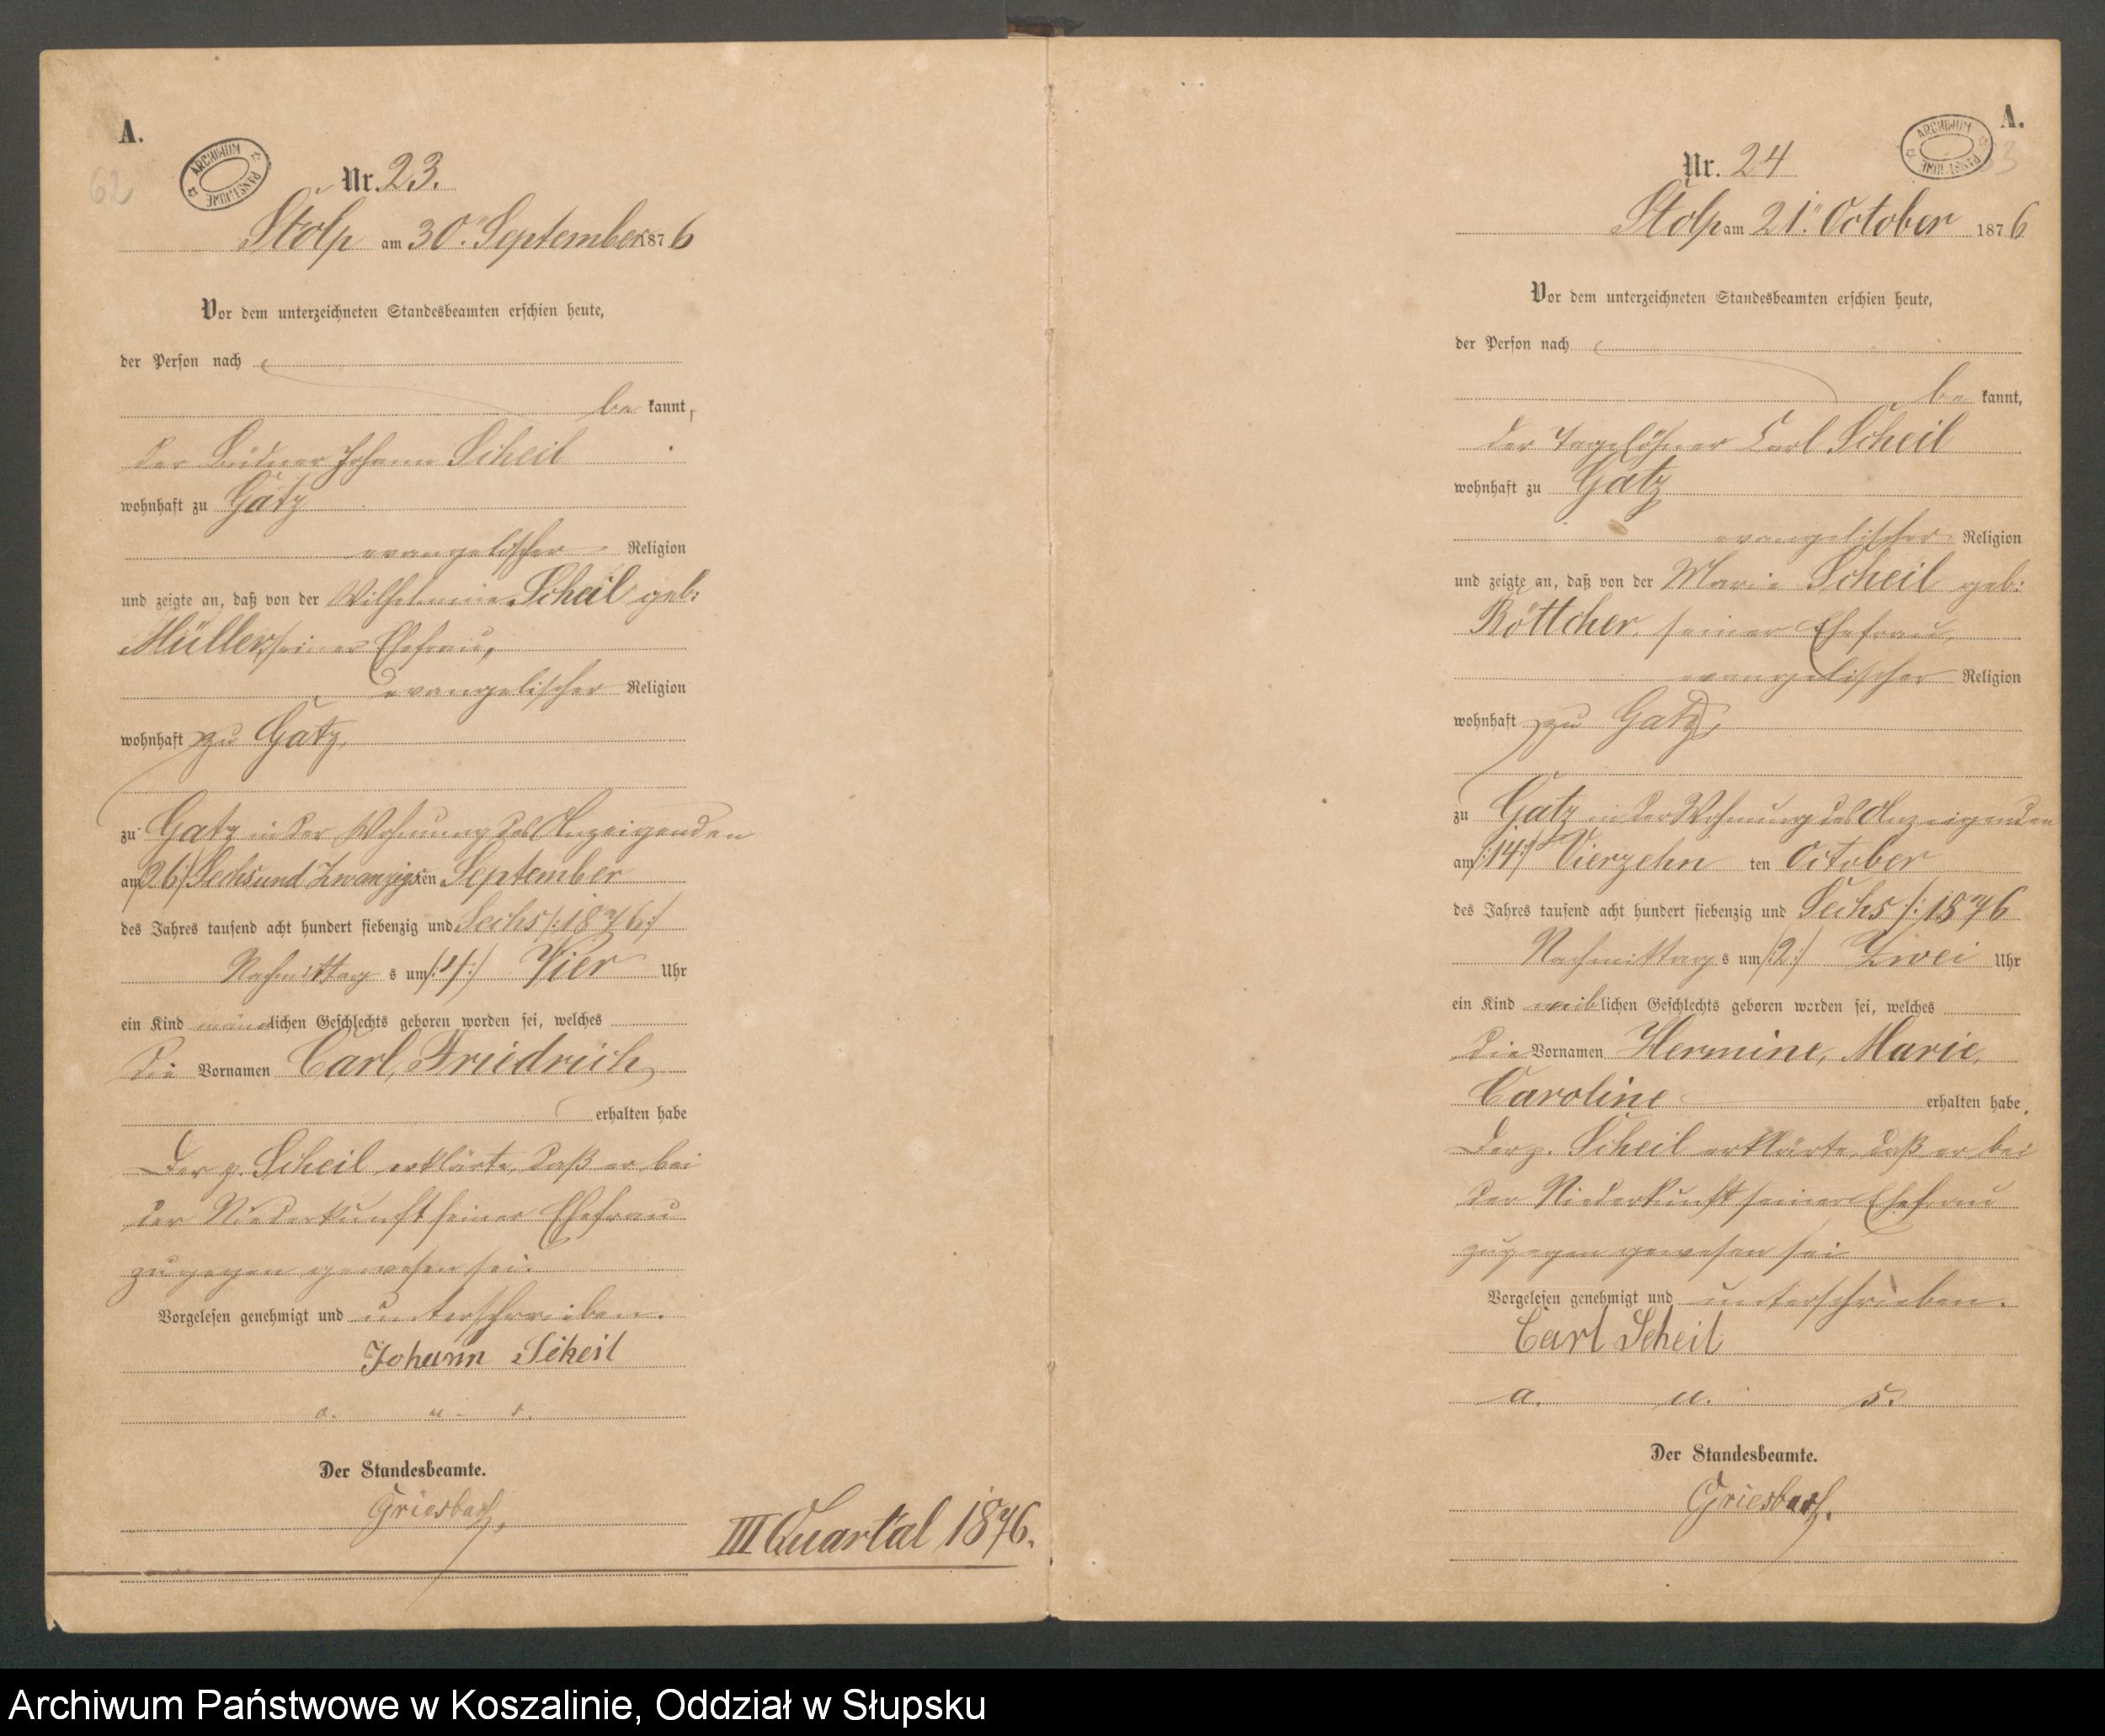 A.
62
ARCHIWUM PAŃSTWOWE
Nr. 23.
Stolp am 30ⁿ September 1876
Vor dem unterzeichneten Standesbeamten erschien heute,
der Person nach
be kannt,
der Büdner Johann Scheil
wohnhaft zu Gatz
evangelischer Religion
und zeigte an, daß von der Wilhelmine Scheil geb:
Müller, seiner Ehefrau,
evangelischer Religion
wohnhaft zu Gatz,
zu Gatz in der Wohnung des Anzeigenden
am /26/ Sechsund Zwanzigsten September
des Jahres tausend acht hundert siebenzig und Sechs /:1876:/
Nachmittag s um /:4:/ Vier Uhr
ein Kind männlichen Geschlechts geboren worden sei, welches
die Vornamen Carl, Friedrich
erhalten habe
Der p. Scheil erklärte, daß er bei
der Niederkunft seiner Ehefrau
zugegen gewesen sei.
Vorgelesen genehmigt und unterschrieben.
Johann Scheil
a. u. s.
Der Standesbeamte.
Griesbach,
III Quartal 1876.
A.
ARCHIWUM PAŃSTWOWE
Nr. 24
Stolp am 21ⁿ October 1876
Vor dem unterzeichneten Standesbeamten erschien heute,
der Person nach
be kannt,
der Tagelöhner Carl Scheil
wohnhaft zu Gatz
evangelischer Religion
und zeigte an, daß von der Marie Scheil geb:
Böttcher, seiner Ehefrau,
evangelischer Religion
wohnhaft zu Gatz,
zu Gatz in der Wohnung des Anzeigenden
am /:14:/ Vierzehn ten October
des Jahres tausend acht hundert siebenzig und Sechs /: 1876
Nachmittag s um /:2:/ Zwei Uhr
ein Kind weiblichen Geschlechts geboren worden sei, welches
die Vornamen Hermine, Marie,
Caroline erhalten habe.
Der p. Scheil erklärte, daß er bei
der Niederkunft seiner Ehefrau
zugegen gewesen sei
Vorgelesen genehmigt und unterschrieben.
Carl Scheil
a. u. s.
Der Standesbeamte.
Griesbach.
Archiwum Państwowe w Koszalinie, Oddział w Słupsku